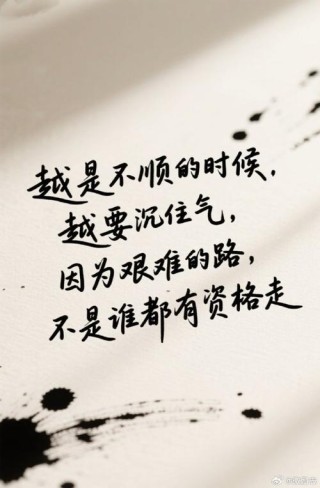 越是不顺的时候，
越要沉住气，
因为艰难的路，
不是谁都有资格走